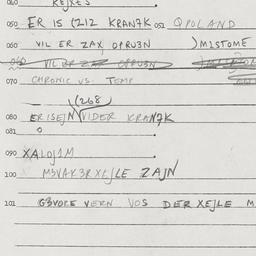 040 KEJXES
050 ER IS (212 KRAN7K 051 QPOLAND
060 VIL ER ZAX, OPRU3N )M1STOME
060 VIL ER ZAX OPRU3N
070 CHRONIC VS. TEMP
(268)
080 ERISEJN VIDER KRAN7K
081 0
090 XALOJ1M
100 M3VAK3RXEJLE ZAJN
101 G3VORE VERN VOS DER XEJLE M